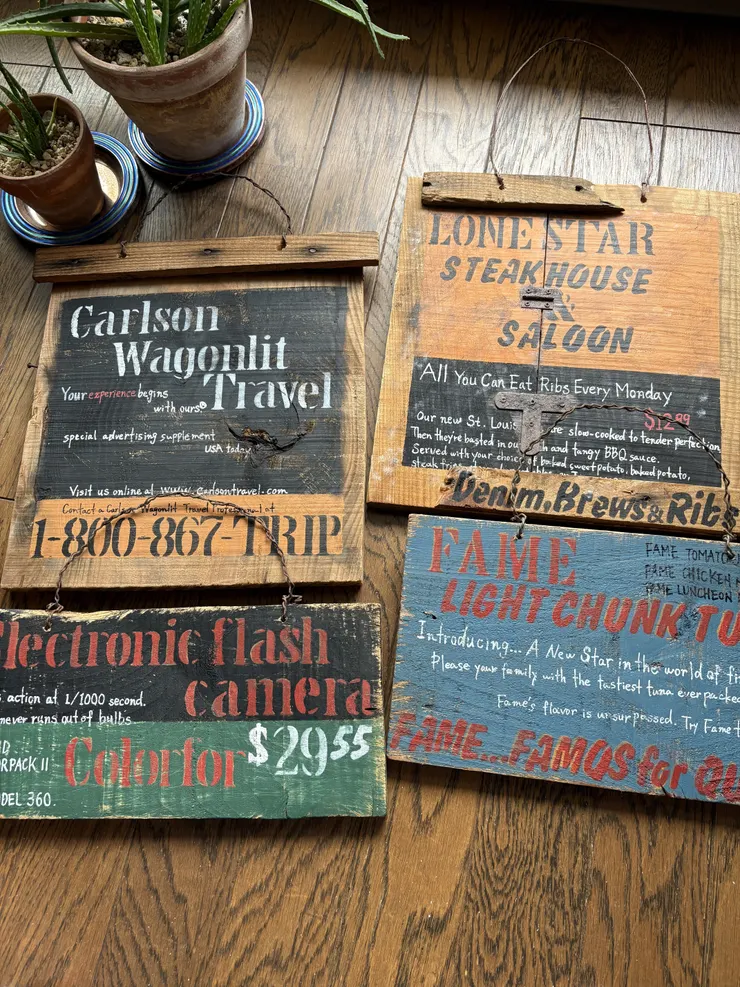 Carlson
Wagonlit
Travel
Your experience begins
with ours®
special advertising supplement
USA today
Visit us online at www.carlsontravel.com
Contact a Carlson Wagonlit Travel
1-800-867-TRIP
LONE STAR
STEAKHOUSE
&
SALOON
All You Can Eat Ribs Every Monday
$12.99
Our new St. Louis are slow-cooked to tender perfection
Then they're basted in our and tangy BBQ sauce.
Served with your choice of baked sweet potato, baked potato,
steak fries
Denim, Brews & Ribs
Electronic flash
camera
action at 1/1000 second.
never runs out of bulbs
RPACK II
DEL 360.
Colorfor
$2955
FAME
LIGHT CHUNK TU
FAME TOMATO
FAME CHICKEN
FAME LUNCHEON
Introducing... A New Star in the world of
Please your family with the tastiest tuna ever packed
Fame's flavor is unsurpessed. Try Fame
FAME...FAMOS for QU